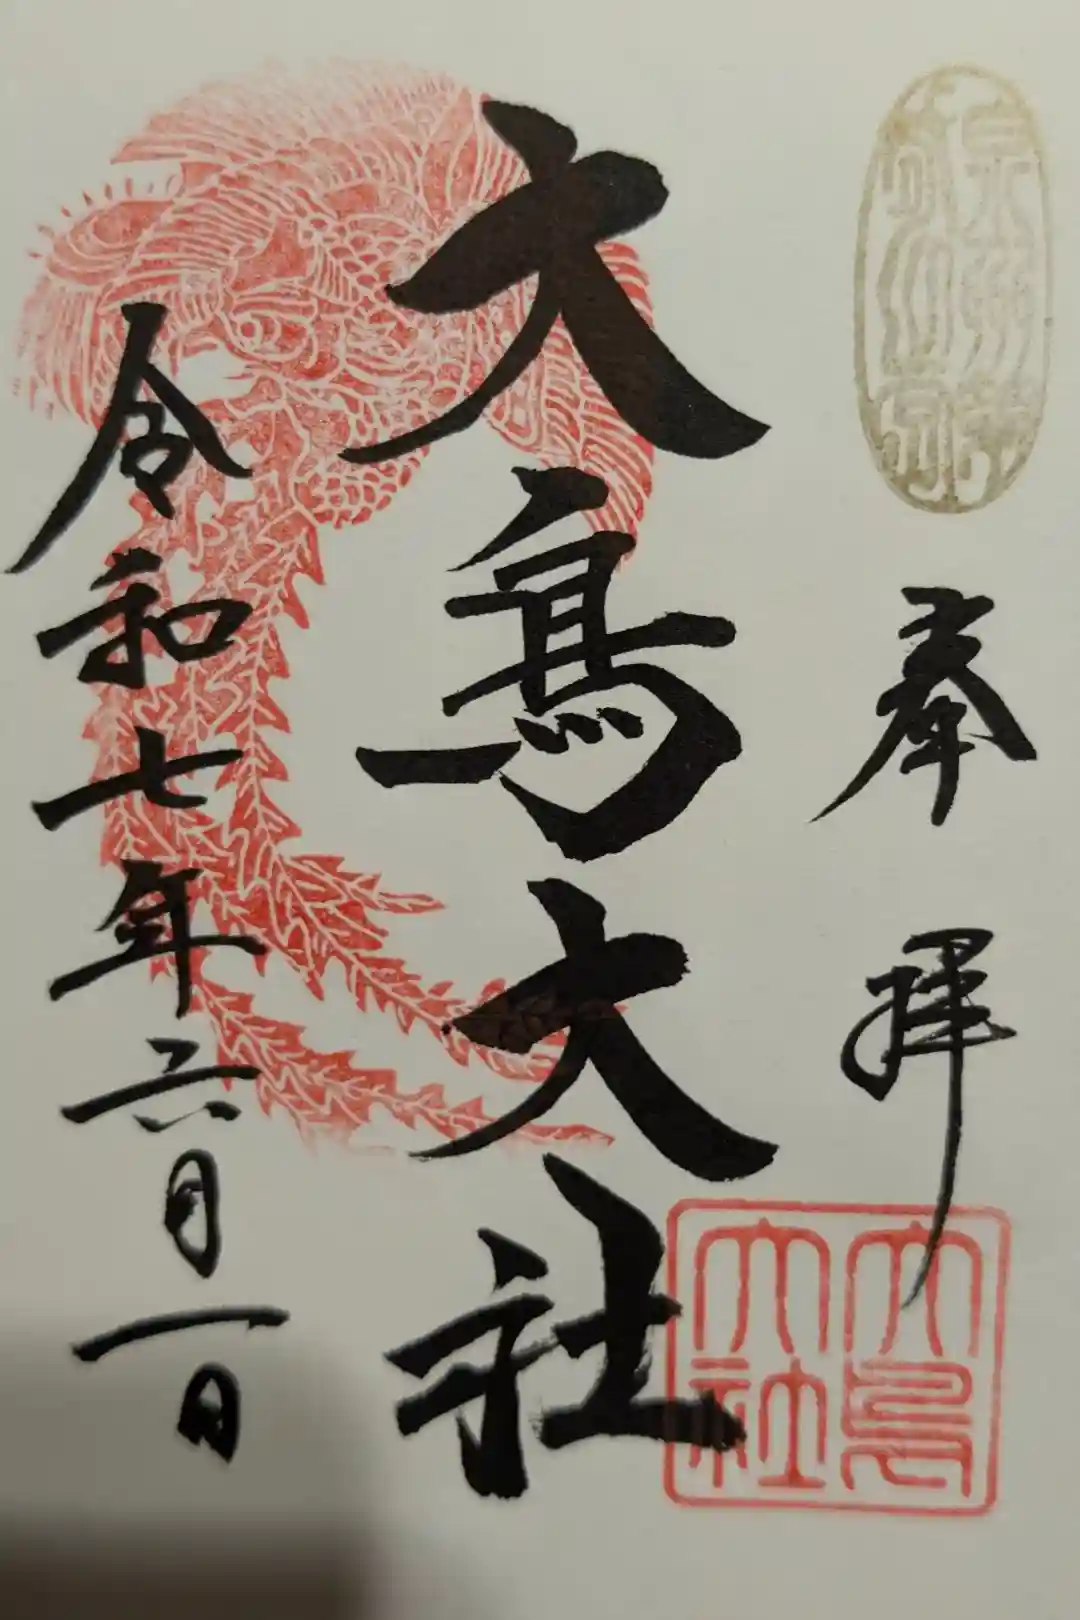 奉拝
大鳥大社
令和七年六月一日
大鳥
大社